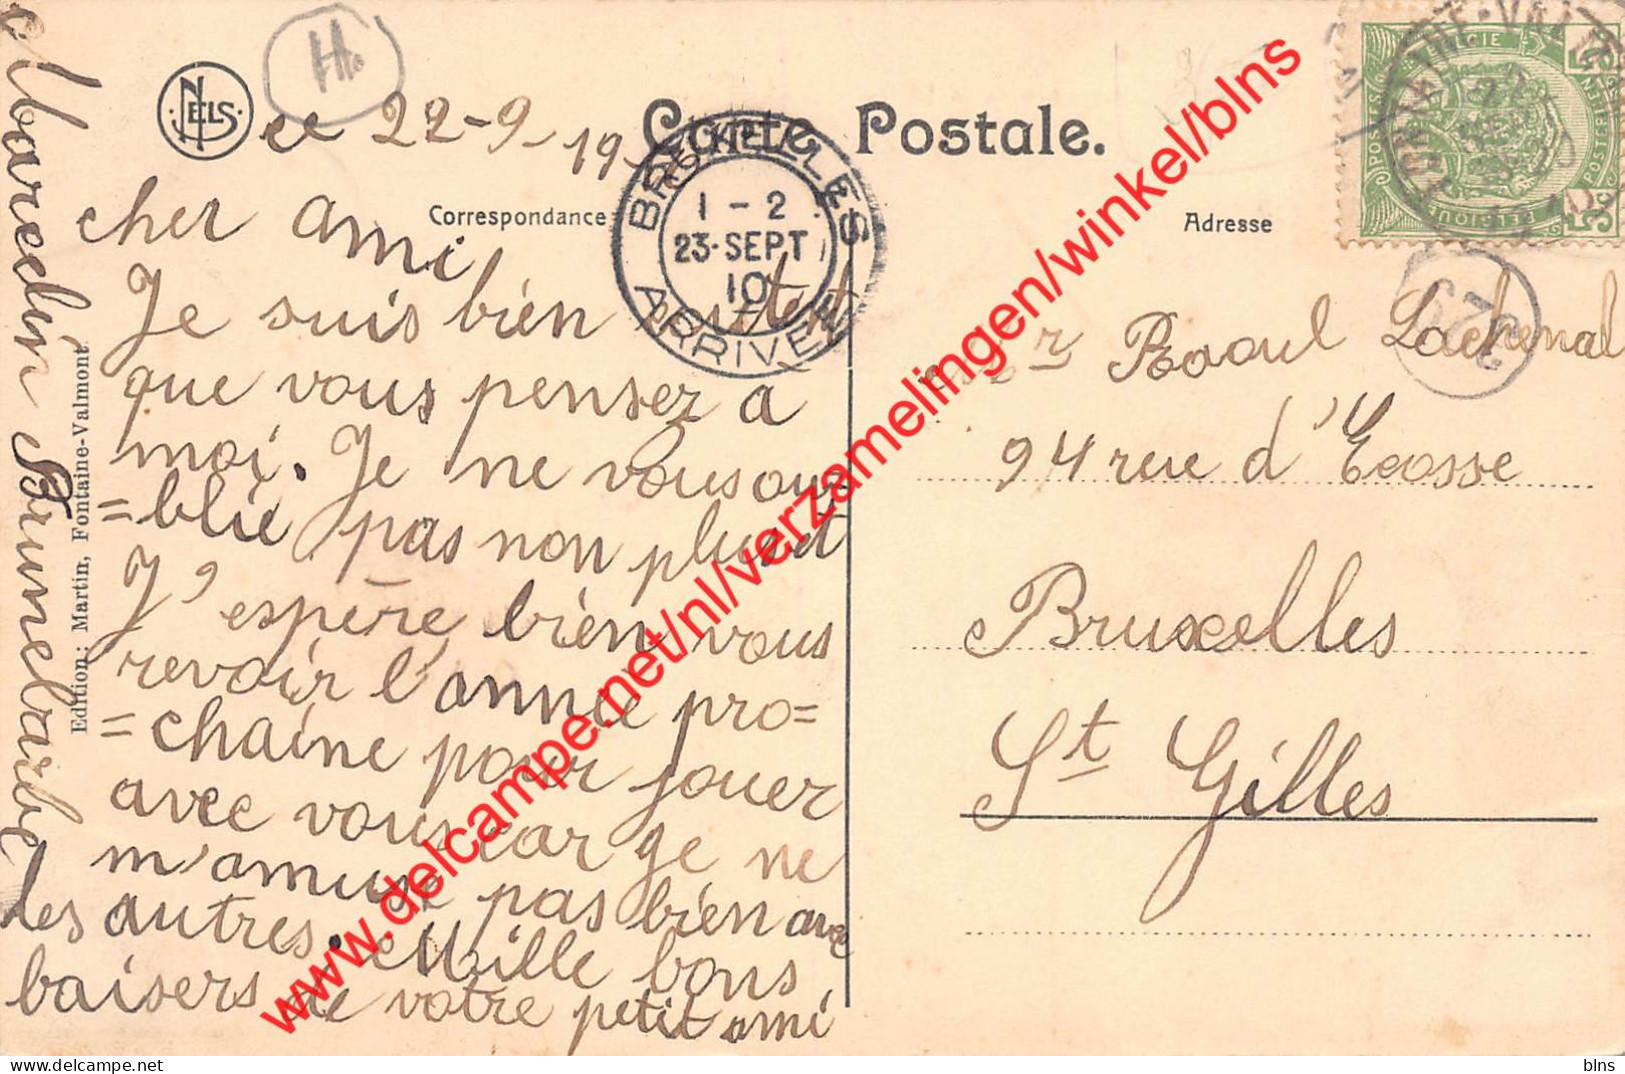 NELS
H.
ce 22-9-19
Carte Postale.
Correspondance
Adresse
BRUXELLES
1-2
23·SEPT
10
ARRIVÉE
BELGIQUE
5c
cher ami
Je suis bien
que vous pensez à
moi. Je ne vous ou=
=blie pas non plus et
J'espère bien vous
revoir l'année pro=
=chaine pour jouer
avec vous car je ne
m'amuse pas bien avec
les autres. Mille bons
baisers de votre petit ami
Marcelin Brunebarbe
Edition: Martin, Fontaine-Valmont
Raoul Lachenal
94 rue d'Ecosse
Bruxelles
St Gilles
www.delcampe.net/nl/verzamelingen/winkel/blns
blns